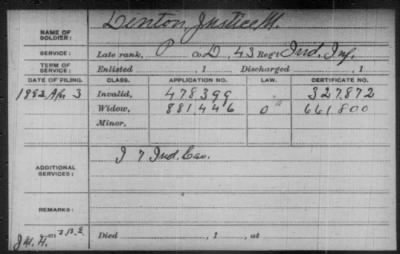 NAME OF SOLDIER: Denton, Justice M.
SERVICE: Late rank, P Co. D, 43 Reg't Ind. Inf.
TERM OF SERVICE: Enlisted , 1 Discharged , 1
DATE OF FILING. CLASS. APPLICATION NO. LAW. CERTIFICATE NO.
1882 Apr 3 Invalid, 478399 327.872
Widow, 881446 661800
Minor,
ADDITIONAL SERVICES: I 7 Ind. Cav.
REMARKS:
Died , 1 , at